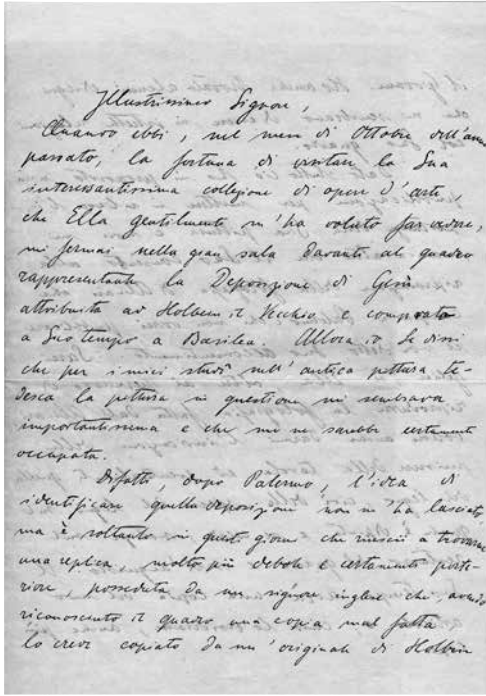 Illustrissimo Signore,
Quando ebbi, nel mese di Ottobre dell'anno
passato, la fortuna di visitare la Sua
interessantissima collezione di opere d'arte,
che Ella gentilmente m'ha voluto far vedere,
mi fermai nella gran sala davanti al quadro
rappresentante la Deposizione di Gesù
attribuita ad Holbein il Vecchio e comprato
a Suo tempo a Basilea. Allora io Le dissi
che per i miei studî sull'antica pittura te-
desca la pittura in questione mi sembrava
importantissima e che me ne sarebbe certamente
occupata.
Difatti, dopo Palermo, l'idea di
identificare quella deposizione non m'ha lasciato
ma è soltanto in questi giorni che riuscii a trovarne
una replica, molto più debole e certamente poste-
riore posseduta da un signore inglese che, avendo
riconosciuto il quadro una copia mal fatta
lo crede copiato da un'originale di Holbein